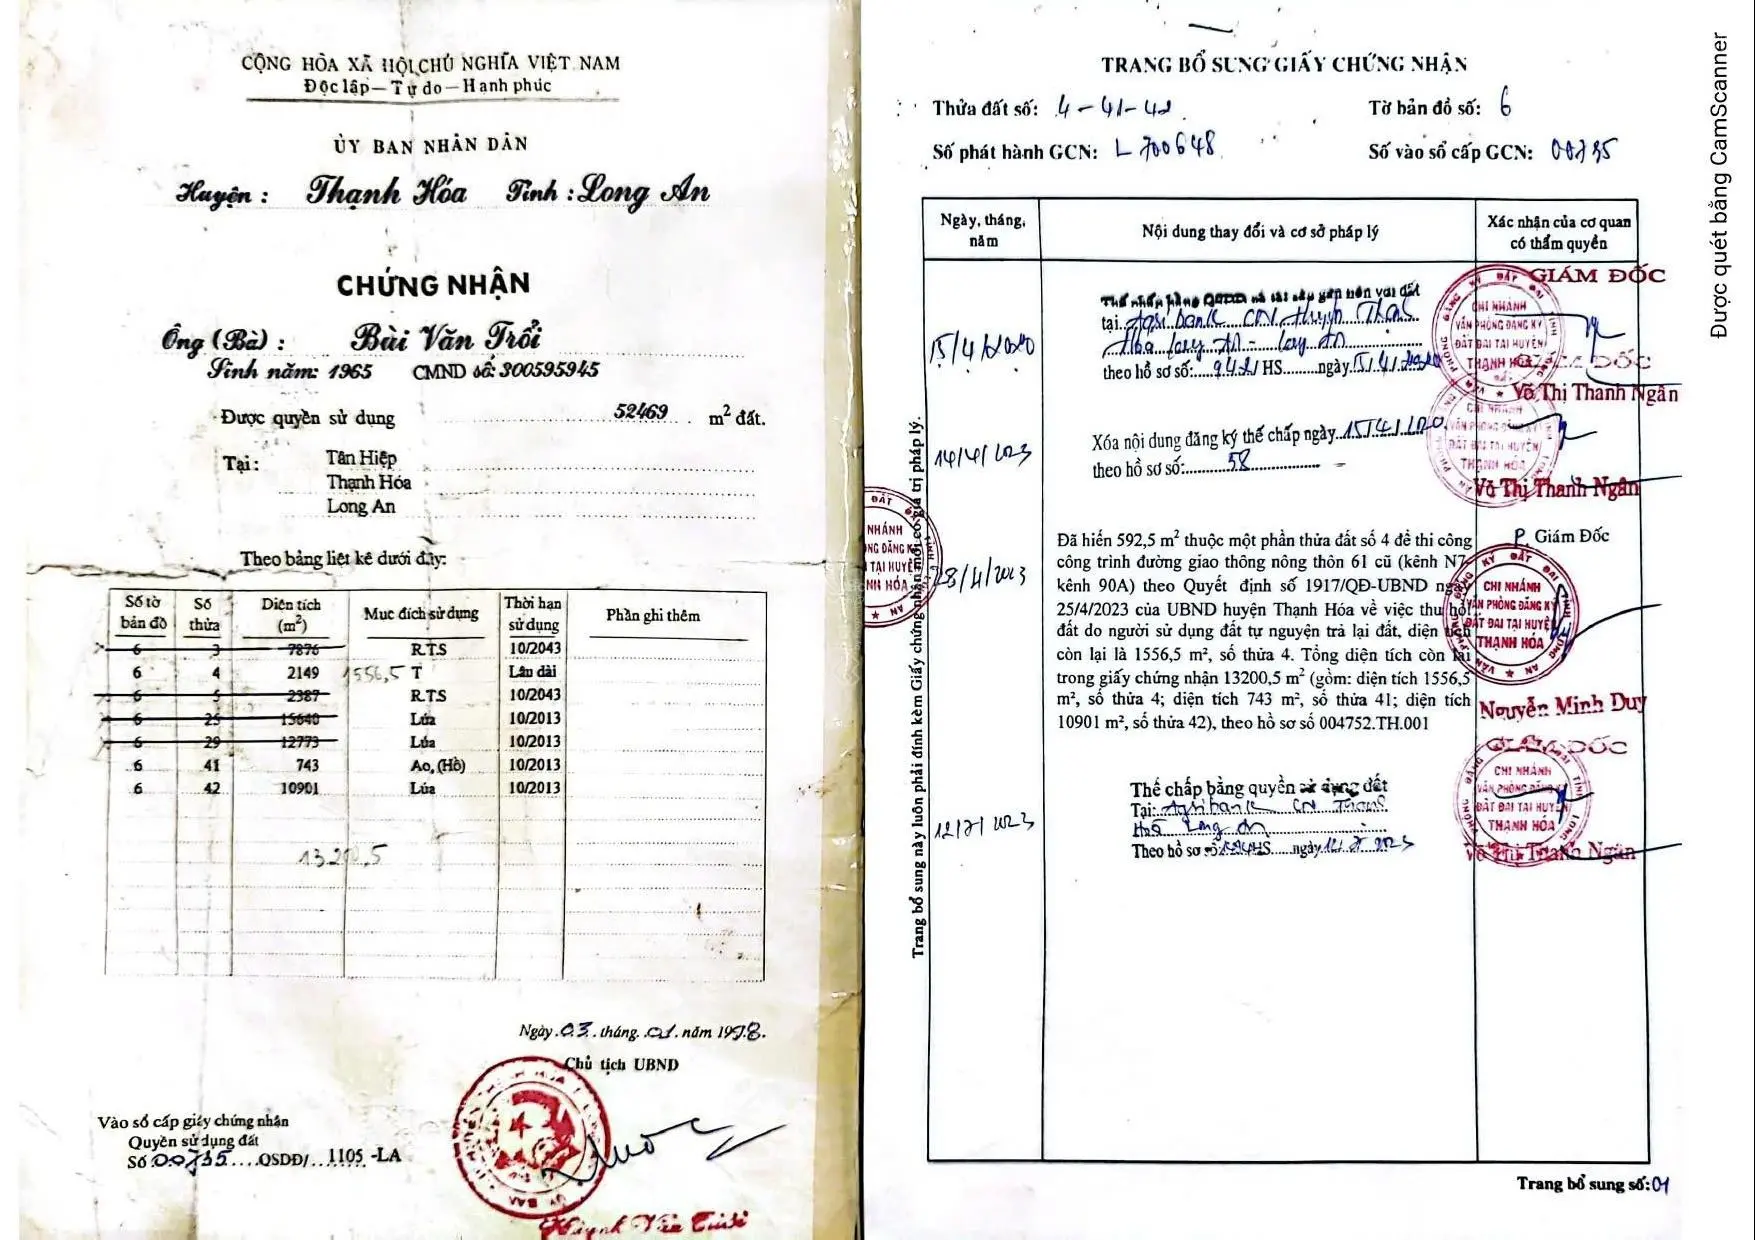 CỘNG HÒA XÃ HỘI CHỦ NGHĨA VIỆT NAM
Độc lập - Tự do - Hạnh phúc
ỦY BAN NHÂN DÂN
Huyện : Thạnh Hóa Tỉnh : Long An
CHỨNG NHẬN
Ông (Bà) : Bùi Văn Trổi
Sinh năm: 1965 CMND số: 300595945
Được quyền sử dụng 52469 m² đất.
Tại : Tân Hiệp
Thạnh Hóa
Long An
Theo bảng liệt kê dưới đây:
Số tờ bản đồ Số thửa Diện tích (m²) Mục đích sử dụng Thời hạn sử dụng Phần ghi thêm
6 3 7876 R.T.S 10/2043
6 4 2149 1556,5 T Lâu dài
6 5 2387 R.T.S 10/2043
6 25 15640 Lúa 10/2013
6 29 12773 Lúa 10/2013
6 41 743 Ao, (Hồ) 10/2013
6 42 10901 Lúa 10/2013
13200,5
Ngày 03 tháng 01 năm 1998.
Chủ tịch UBND
Vào sổ cấp giấy chứng nhận
Quyền sử dụng đất
Số 00735 QSDĐ/ 1105 -LA
TRANG BỔ SUNG GIẤY CHỨNG NHẬN
Thửa đất số: 4-41-42 Tờ bản đồ số: 6
Số phát hành GCN: L 700648 Số vào sổ cấp GCN: 00735
Ngày, tháng, năm Nội dung thay đổi và cơ sở pháp lý Xác nhận của cơ quan có thẩm quyền
15/4/2020
Thế chấp bằng QSDĐ và tài sản gắn liền với đất
tại Agribank CN Huyện Thạnh
Hóa Long An - Long An
theo hồ sơ số: 942/HS ngày 15/4/2020
GIÁM ĐỐC
CHI NHÁNH
VĂN PHÒNG ĐĂNG KÝ
ĐẤT ĐAI TẠI HUYỆN
THẠNH HÓA
Võ Thị Thanh Ngân
14/4/2023
Xóa nội dung đăng ký thế chấp ngày 15/4/2020
theo hồ sơ số: 58
GIÁM ĐỐC
Võ Thị Thanh Ngân
28/4/2023
Đã hiến 592,5 m² thuộc một phần thửa đất số 4 để thi công
công trình đường giao thông nông thôn 61 cũ (kênh N7-
kênh 90A) theo Quyết định số 1917/QĐ-UBND ngày
25/4/2023 của UBND huyện Thạnh Hóa về việc thu hồi
đất do người sử dụng đất tự nguyện trả lại đất, diện tích
còn lại là 1556,5 m², số thửa 4. Tổng diện tích còn lại
trong giấy chứng nhận 13200,5 m² (gồm: diện tích 1556,5
m², số thửa 4; diện tích 743 m², số thửa 41; diện tích
10901 m², số thửa 42), theo hồ sơ số 004752.TH.001
P. Giám Đốc
CHI NHÁNH
VĂN PHÒNG ĐĂNG KÝ
ĐẤT ĐAI TẠI HUYỆN
THẠNH HÓA
Nguyễn Minh Duy
12/7/2023
Thế chấp bằng quyền sử dụng đất
Tại: Agribank CN Thạnh
Hóa Long An
Theo hồ sơ số HS ngày 12/7/2023
GIÁM ĐỐC
CHI NHÁNH
VĂN PHÒNG ĐĂNG KÝ
ĐẤT ĐAI TẠI HUYỆN
THẠNH HÓA
Võ Thị Thanh Ngân
Trang bổ sung này luôn phải đính kèm Giấy chứng nhận mới có giá trị pháp lý.
Trang bổ sung số: 01
Được quét bằng CamScanner